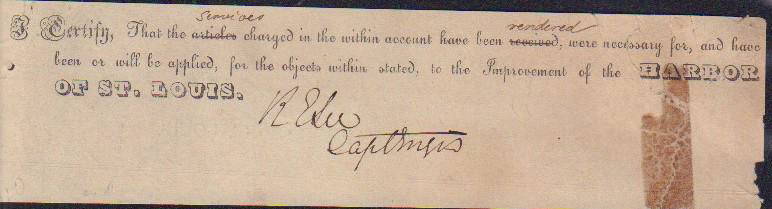 services rendered
I Certify, That the articles charged in the within account have been received, were necessary for, and have
been or will be applied, for the objects within stated, to the Improvement of the HARBOR
OF ST. LOUIS.
R E Lee
Capt Engrs